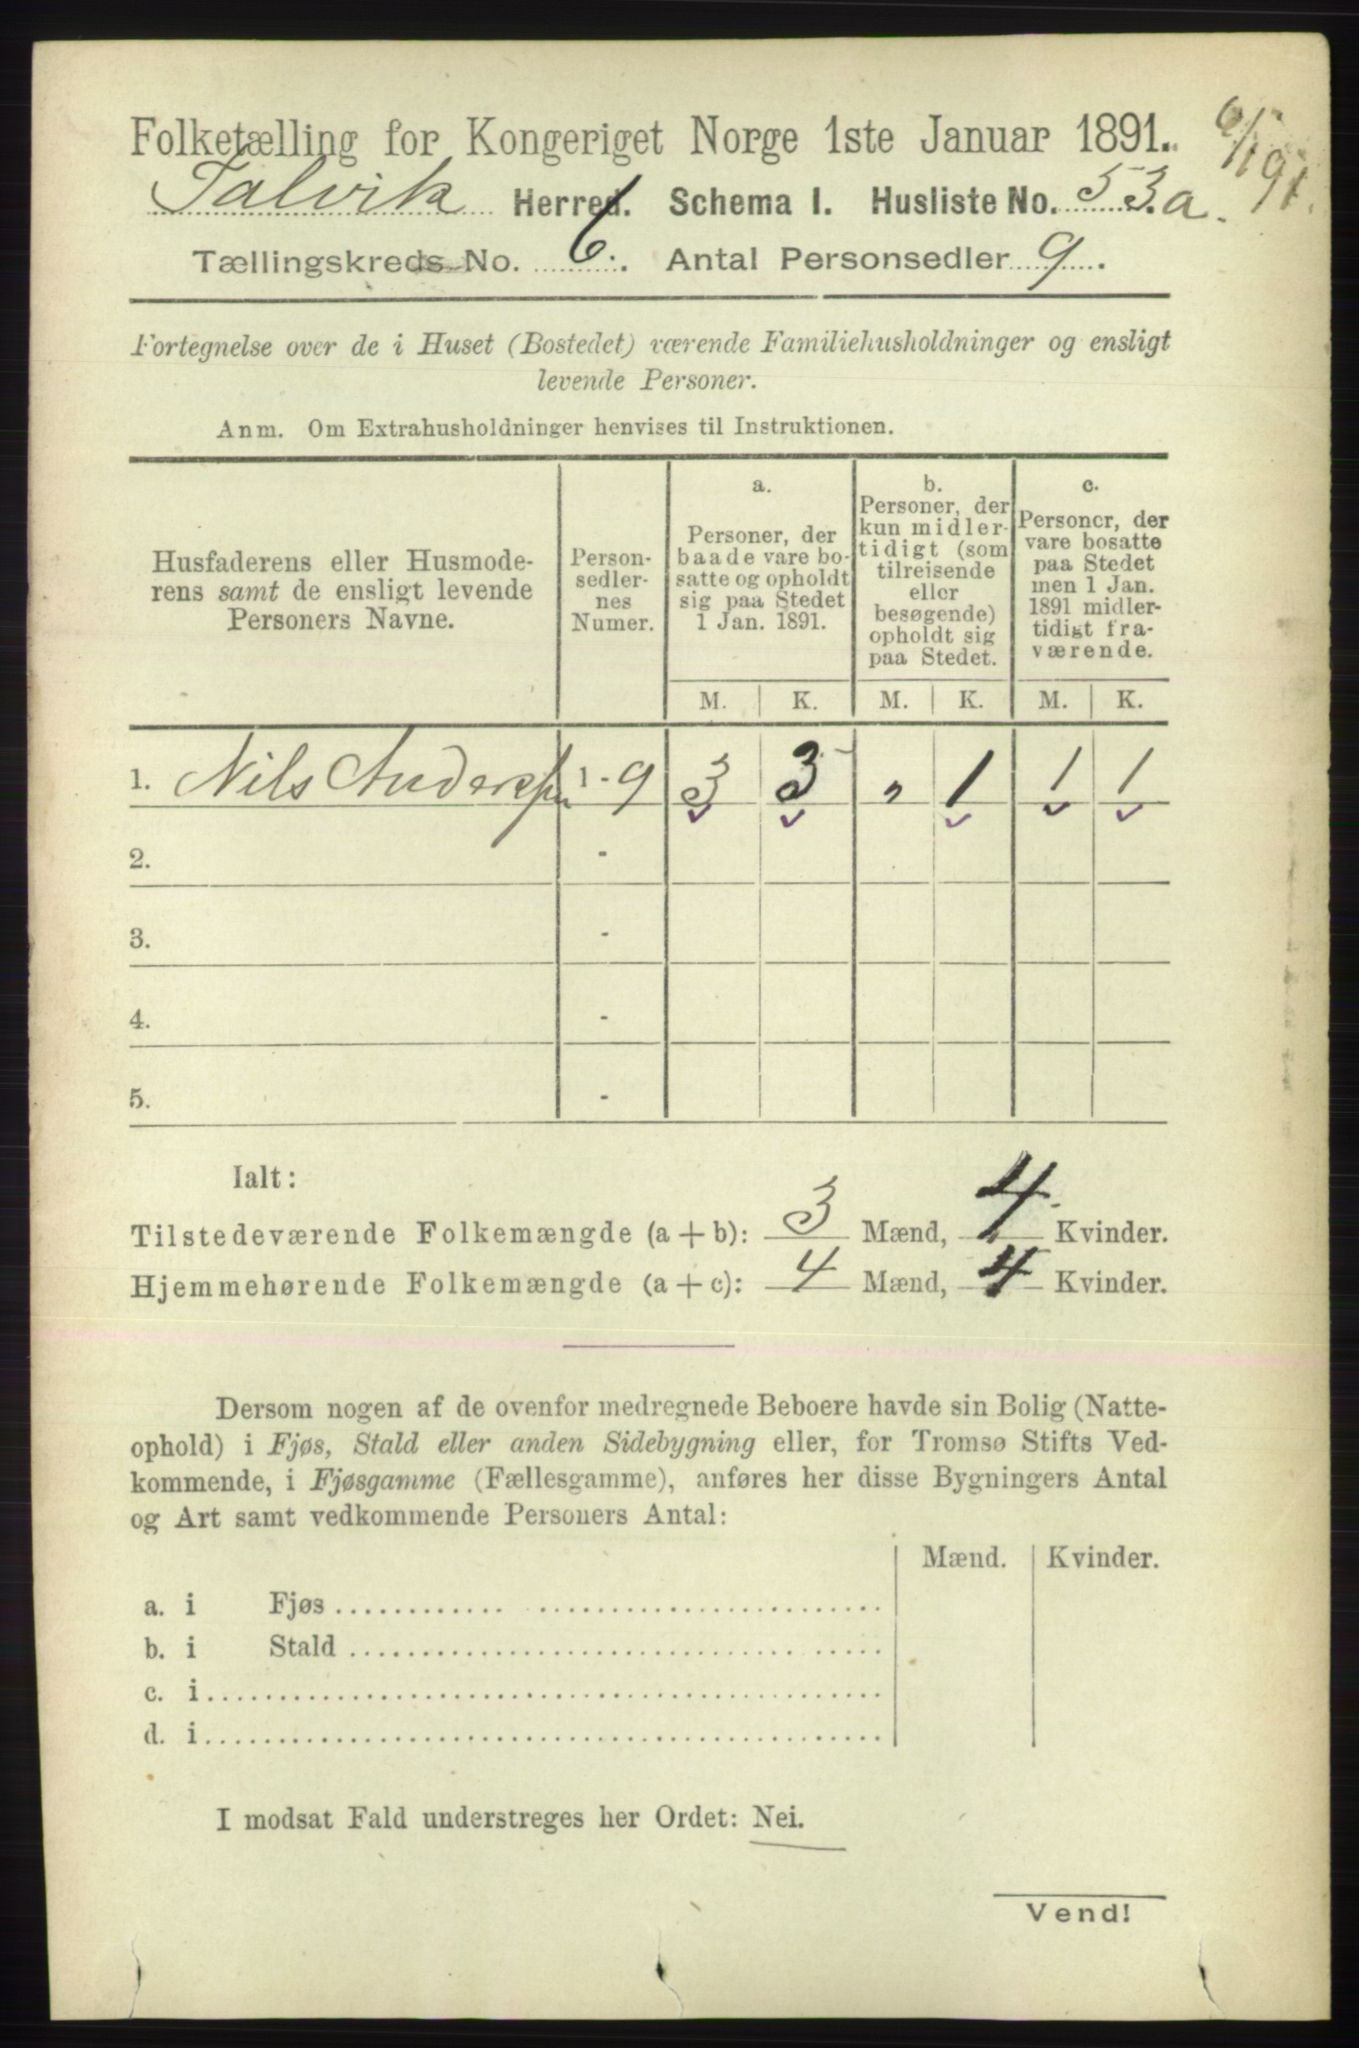 Folketælling for Kongeriget Norge 1ste Januar 1891.
6/1 91.
Talvik Herred. Schema I. Husliste No. 53.a.
Tællingskreds No. 6. Antal Personsedler 9.
Fortegnelse over de i Huset (Bostedet) værende Familiehusholdninger og ensligt
levende Personer.
Anm. Om Extrahusholdninger henvises til Instruktionen.
Husfaderens eller Husmode-
rens samt de ensligt levende
Personers Navne.
Person-
sedler-
nes
Numer.
a.
Personer, der
baade vare bo-
satte og opholdt
sig paa Stedet
1 Jan. 1891.
b.
Personer, der
kun midler-
tidigt (som
tilreisende
eller
besøgende)
opholdt sig
paa Stedet.
c.
Personer, der
vare bosatte
paa Stedet
men 1 Jan.
1891 midler-
tidigt fra-
værende.
M. K. M. K. M. K.
1. Nils Anderssen 1 - 9 3 3 " 1 1 1
2. -
3. -
4. -
5. -
Ialt:
Tilstedeværende Folkemængde (a + b): 3 Mænd, 4 Kvinder.
Hjemmehørende Folkemængde (a + c): 4 Mænd, 4 Kvinder.
Dersom nogen af de ovenfor medregnede Beboere havde sin Bolig (Natte-
ophold) i Fjøs, Stald eller anden Sidebygning eller, for Tromsø Stifts Ved-
kommende, i Fjøsgamme (Fællesgamme), anføres her disse Bygningers Antal
og Art samt vedkommende Personers Antal:
Mænd. Kvinder.
a. i Fjøs
b. i Stald
c. i
d. i
I modsat Fald understreges her Ordet: Nei.
Vend!